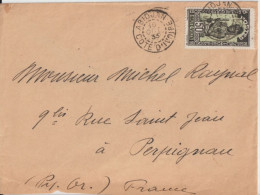 ABIDJAN
CÔTE D'IVOIRE
Monsieur Michel Raynal
9bis Rue Saint Jean
à Perpignan
(Pyr. Or.) France